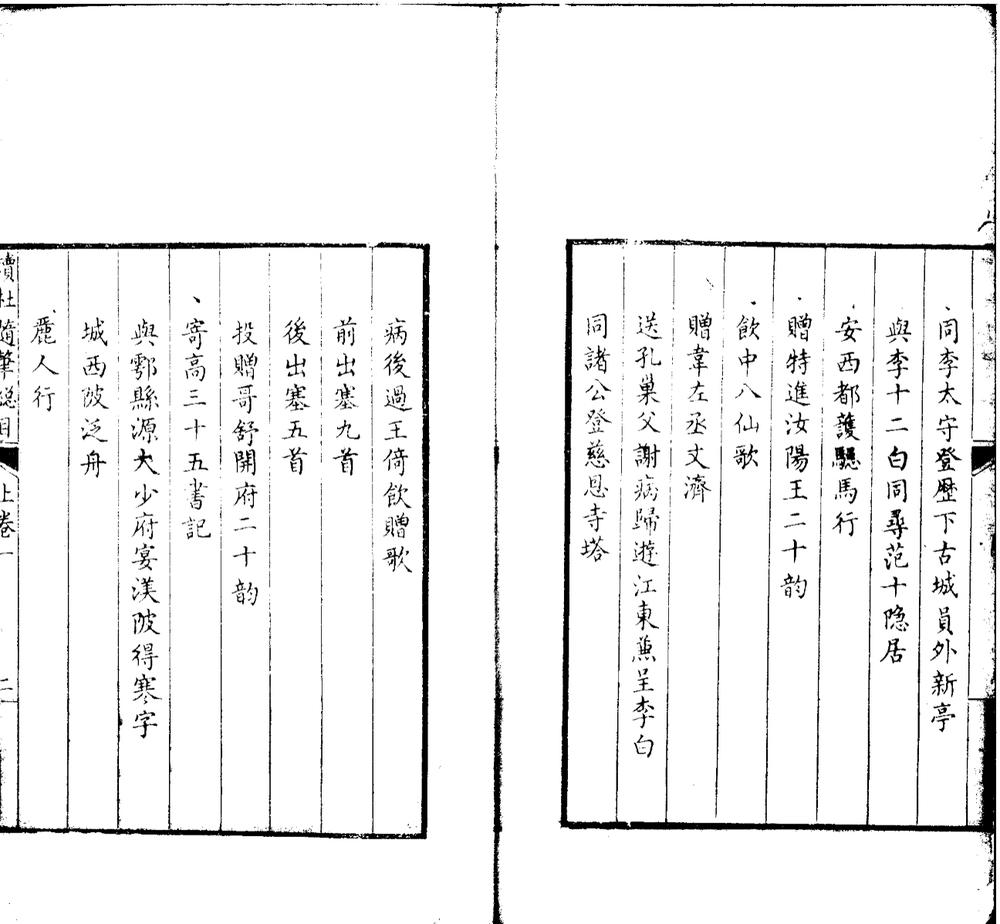 同李太守登歷下古城員外新亭
與李十二白同尋范十隱居
安西都護驄馬行
贈特進汝陽王二十韵
飲中八仙歌
贈韋左丞丈濟
送孔巢父謝病歸遊江東兼呈李白
同諸公登慈恩寺塔
病後過王倚飲贈歌
前出塞九首
後出塞五首
投贈哥舒開府二十韵
寄高三十五書記
與鄠縣源大少府宴渼陂得寒字
城西陂泛舟
麗人行
讀杜隨筆總目
上卷一
二